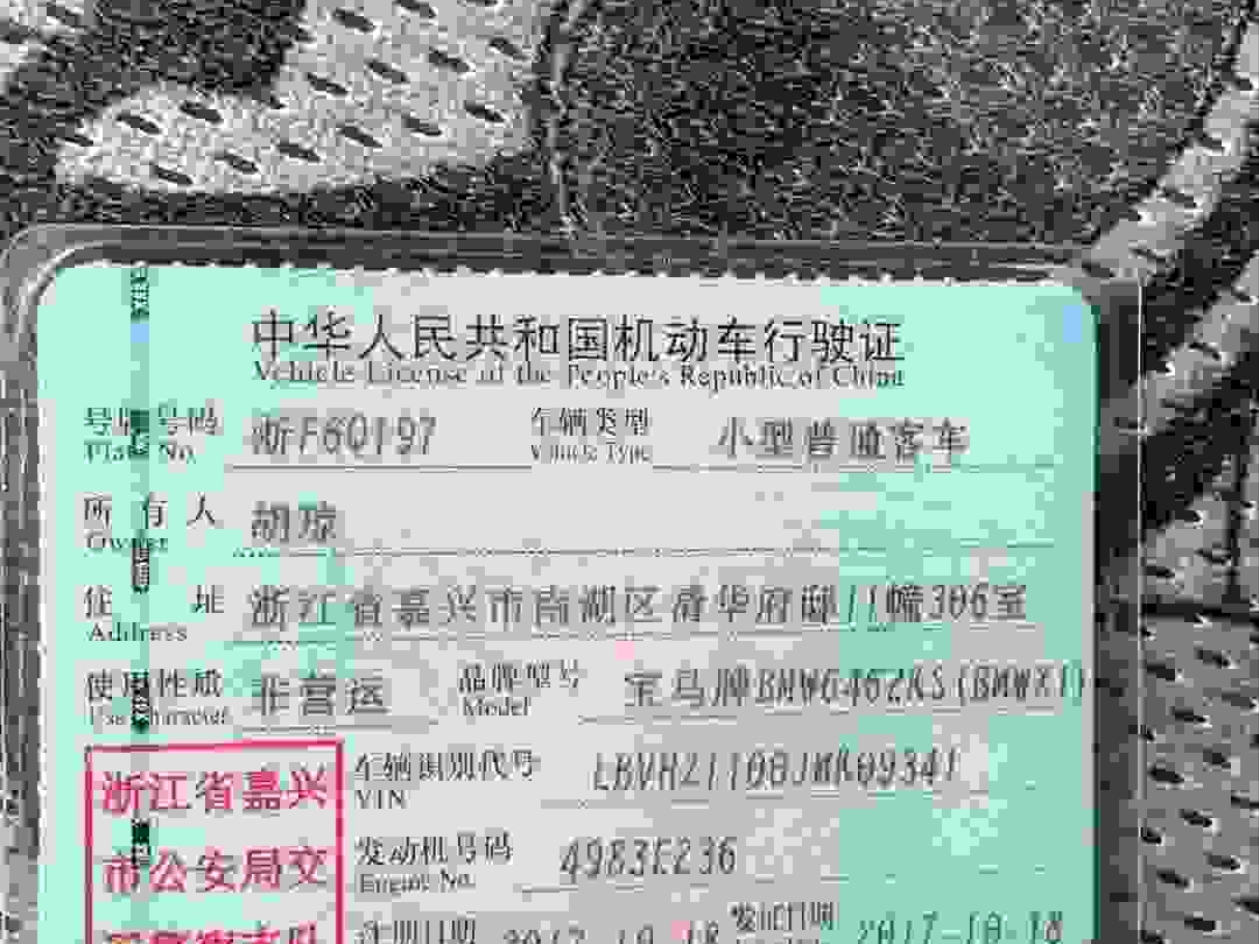 中华人民共和国机动车行驶证
Vehicle License of the People's Republic of China
号牌号码 浙F60197 车辆类型 小型普通客车
Plate No. Vehicle Type
所有人 胡琼
Owner
住址 浙江省嘉兴市南湖区清华府邸11幢306室
Address
使用性质 非营运 品牌型号 宝马牌BMW6462KS(BMWX1)
Use Character Model
浙江省嘉兴 车辆识别代号
VIN
市公安局交 发动机号码 4983E236
Engine No.
注册日期 2017-10-18 发证日期 2017-10-18